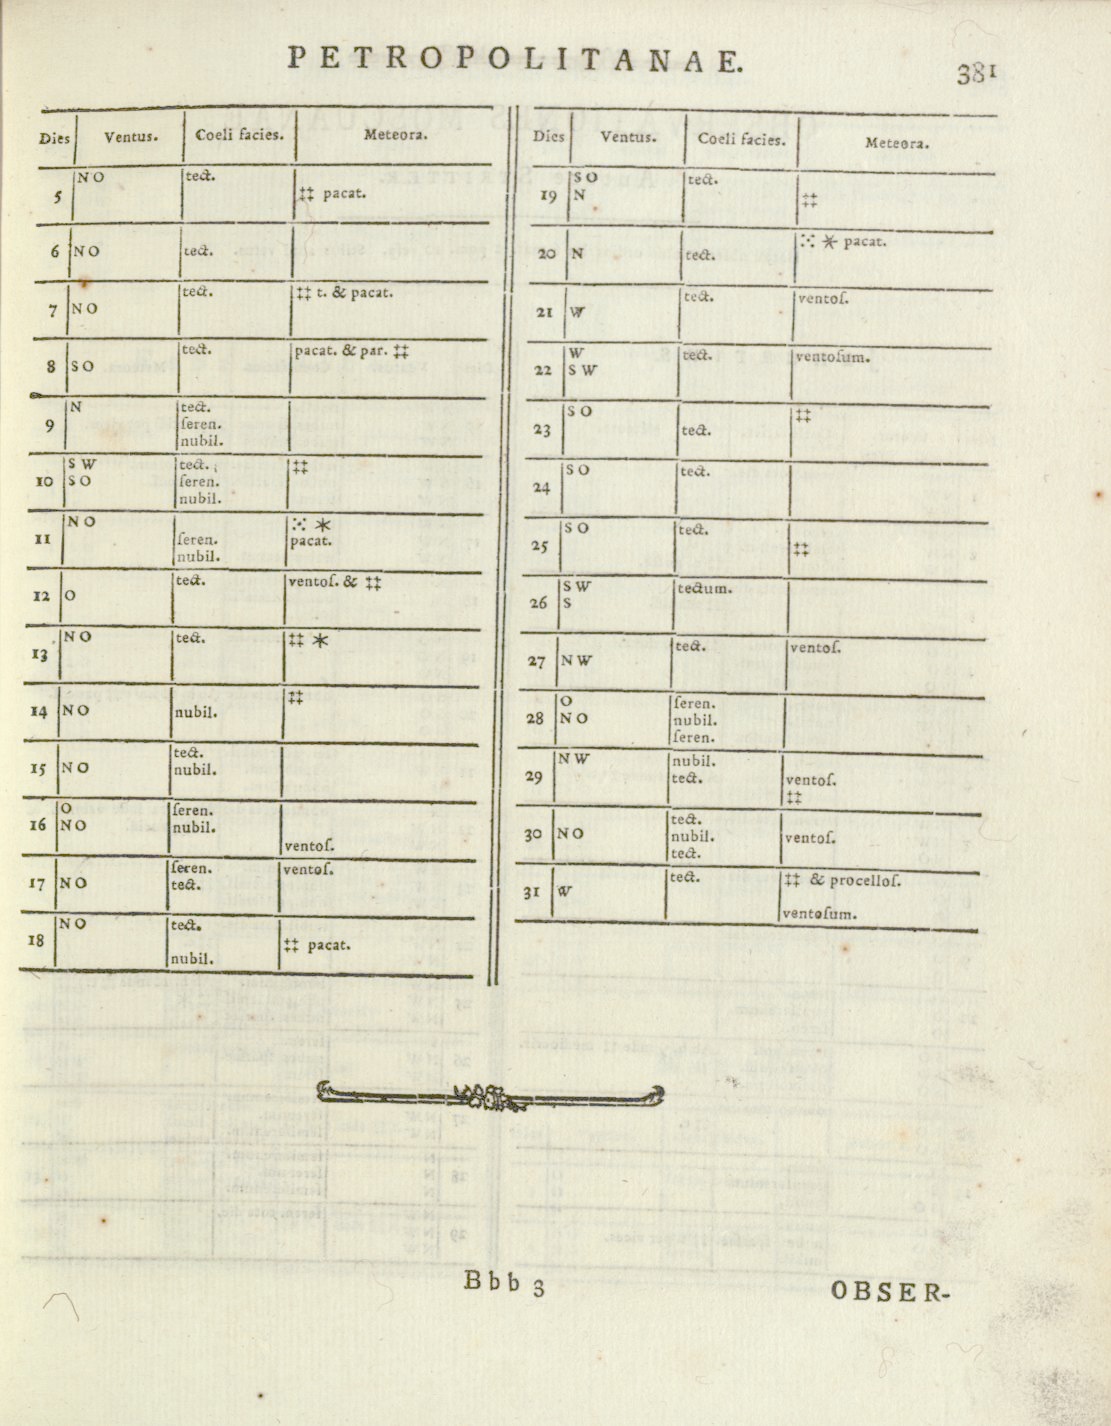 PETROPOLITANAE.
381
Dies Ventus. Coeli facies. Meteora.
NO tect.
5 ‡‡ pacat.
6 NO tect.
tect. ‡‡ t. & pacat.
7 NO
tect. pacat. & par. ‡‡
8 SO
N tect.
9 ſeren.
nubil.
SW tect. ‡‡
10 SO ſeren.
nubil.
NO ⁙ *
11 ſeren. pacat.
nubil.
tect. ventoſ. & ‡‡
12 O
NO tect. ‡‡ *
13
‡‡
14 NO nubil.
tect.
15 NO nubil.
O ſeren.
16 NO nubil.
ventoſ.
ſeren. ventoſ.
17 NO tect.
NO tect.
18 ‡‡ pacat.
nubil.
Dies Ventus. Coeli facies. Meteora.
SO tect.
19 N ‡‡
⁙ * pacat.
20 N tect.
tect. ventoſ.
21 W
W tect. ventoſum.
22 SW
SO ‡‡
23 tect.
SO tect.
24
SO tect.
25 ‡‡
SW tectum.
26 S
tect. ventoſ.
27 NW
O ſeren.
28 NO nubil.
ſeren.
NW nubil.
29 tect. ventoſ.
‡‡
tect.
30 NO nubil. ventoſ.
tect.
tect. ‡‡ & procelloſ.
31 W
ventoſum.
Bbb 3
OBSER-